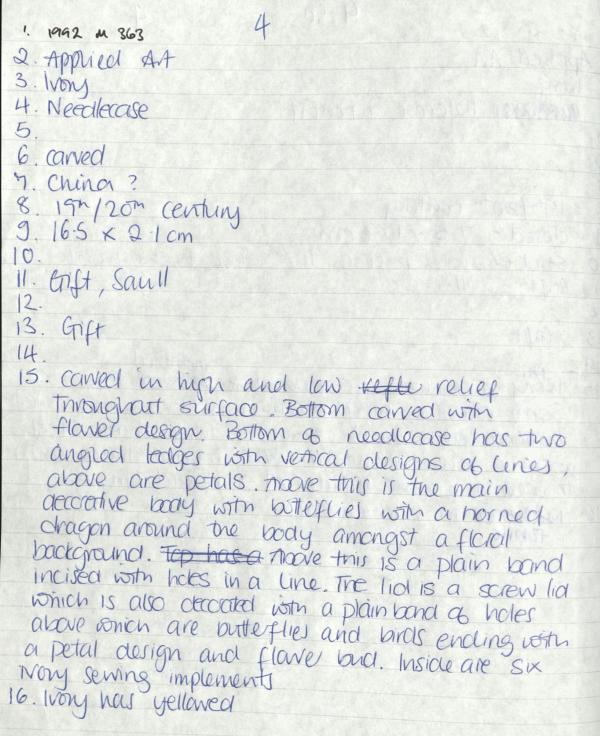 4
1. 1992 M 363
2. Applied Art
3. Ivory
4. Needlecase
5.
6. carved
7. China ?
8. 19th/20th century
9. 16.5 x 2.1cm
10.
11. Gift, Saull
12.
13. Gift
14.
15. carved in high and low relief
throughout surface. Bottom carved with
flower design. Bottom of needlecase has two
angled ledges with vertical designs of lines,
above are petals. Above this is the main
decorative body with butterflies with a horned
dragon around the body amongst a floral
background. Top has a Above this is a plain band
incised with holes in a line. The lid is a screw lid
which is also decorated with a plain band of holes
above which are butterflies and birds ending with
a petal design and flower bud. Inside are six
Ivory sewing implements
16. Ivory has yellowed